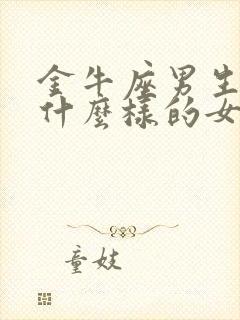 金牛座男生
什麼樣的女
童妓